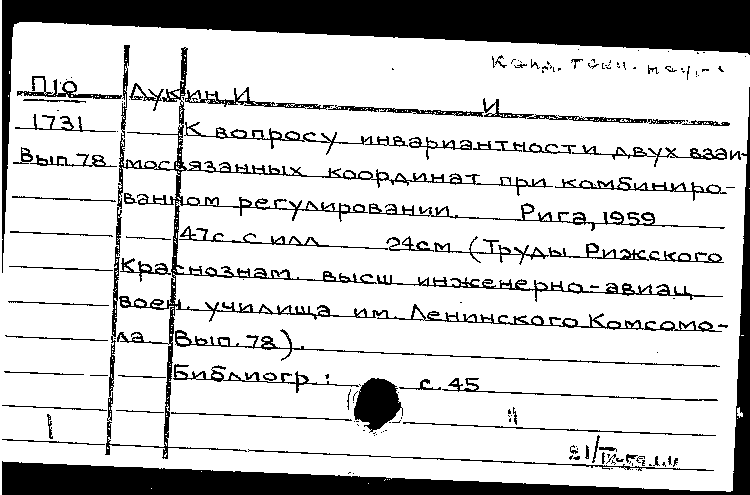 Канд. техн. наук
П10 Лукин, И И
1731 К вопросу инвариантности двух взаи-
Вып. 78 мосвязанных координат при комбиниро-
ванном регулировании. Рига, 1959
47с. с илл 24см (Труды Рижского
Краснознам. высш инженерно-авиац
воен. училища им. Ленинского Комсомо-
ла Вып. 78).
Библиогр: с. 45